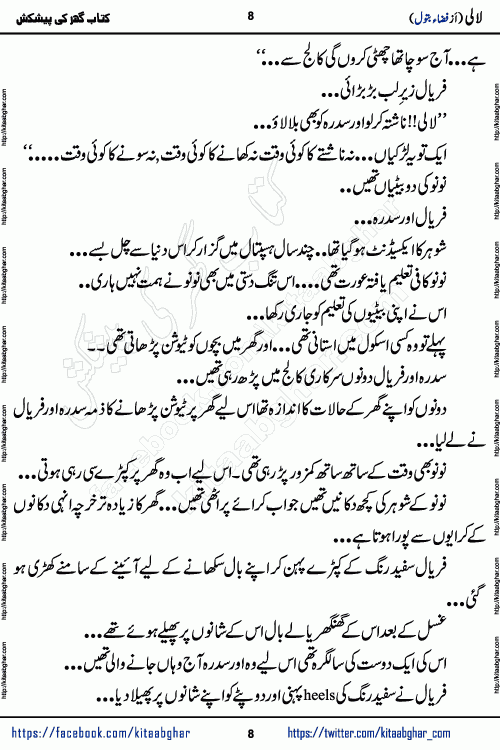 لالی (از فضاء بتول) 8 کتاب گھر کی پیشکش
ہے... آج سوچا تھا چھٹی کروں گی کالج سے...‘‘
فریال زیرِ لب بڑبڑائی...
’’لالی!! ناشتہ کر لو اور سدرہ کو بھی بلا لاؤ...
ایک تو یہ لڑکیاں... نہ ناشتے کا کوئی وقت نہ کھانے کا کوئی وقت، نہ سونے کا کوئی وقت.....‘‘
نونو کی دو بیٹیاں تھیں..
فریال اور سدرہ...
شوہر کا ایکسیڈنٹ ہو گیا تھا.. چند سال ہسپتال میں گزار کر اس دنیا سے چل بسے...
نونو کافی تعلیم یافتہ عورت تھی.... اس تنگ دستی میں بھی نونو نے ہمت نہیں ہاری..
اس نے اپنی بیٹیوں کی تعلیم کو جاری رکھا...
پہلے تو وہ کسی اسکول میں استانی تھی... اور گھر میں بچوں کو ٹیوشن پڑھاتی تھی۔۔
سدرہ اور فریال دونوں سرکاری کالج میں پڑھ رہی تھیں...
دونوں کو اپنے گھر کے حالات کا اندازہ تھا اس لیے گھر پر ٹیوشن پڑھانے کا ذمہ سدرہ اور فریال
نے لے لیا...
نونو بھی وقت کے ساتھ ساتھ کمزور پڑ رہی تھی۔ اس لیے اب وہ گھر پر کپڑے سی رہی ہوتی...
نونو کے شوہر کی کچھ دکانیں تھیں جو اب کرائے پر اٹھی تھیں... گھر کا زیادہ تر خرچہ انہی دکانوں
کے کرایوں سے پورا ہوتا ہے...
فریال سفید رنگ کے کپڑے پہن کر اپنے بال سکھانے کے لیے آئینے کے سامنے کھڑی ہو
گئی...
غسل کے بعد اس کے گھنگھریالے بال اس کے شانوں پر پھیلے ہوئے تھے...
اس کی ایک دوست کی سالگرہ تھی اس لیے وہ اور سدرہ آج وہاں جانے والی تھیں...
فریال نے سفید رنگ کی heels پہنی اور دوپٹے کو اپنے شانوں پر پھیلا دیا...
https://facebook.com/kitaabghar 8 https://twitter.com/kitaabghar_com
http://kitaabghar.com